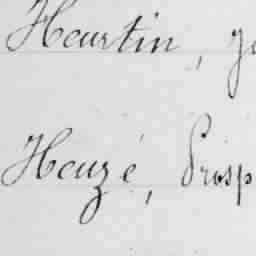 Heurtin, ge
Heuzé, Prosp